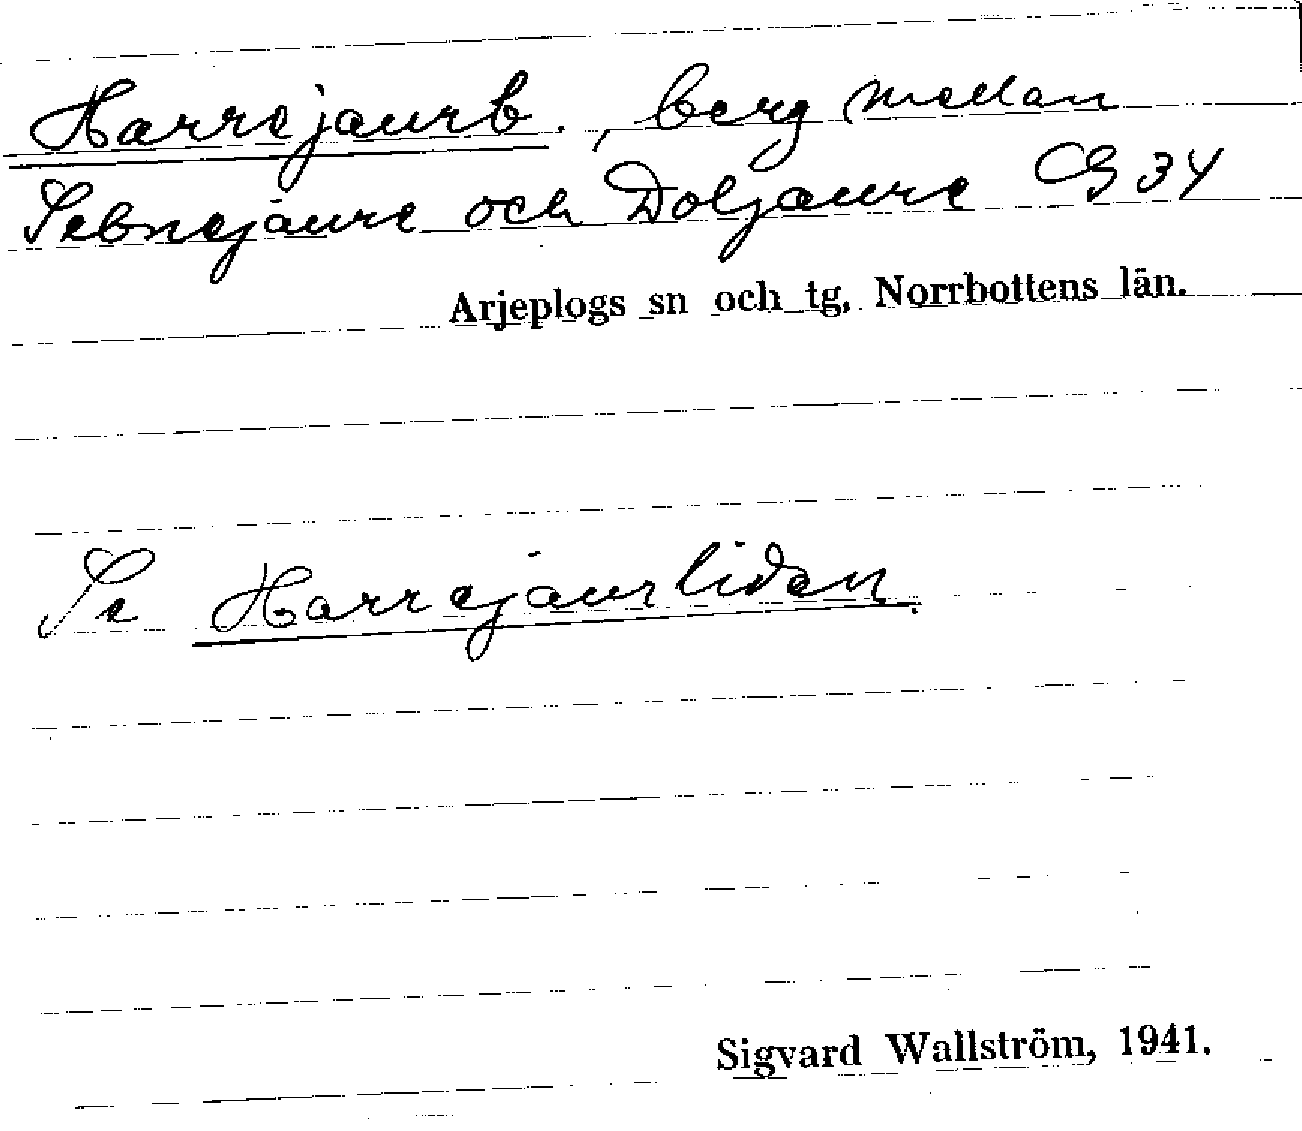 Harrejaurb., berg mellan
Sebnejaure och Doljaure G 34
Arjeplogs sn och tg, Norrbottens län.
Se Harrejaurliden.
Sigvard Wallström, 1941.